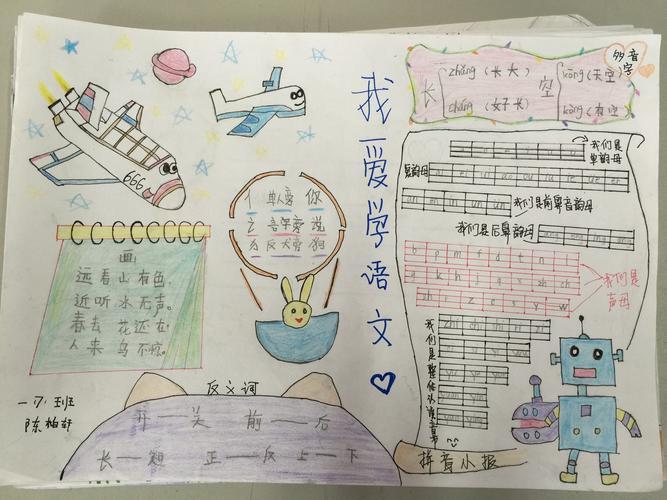 我爱学语文
666
亻 单人旁 你
讠 言字旁 说
犭 反犬旁 狗
画
远看山有色,
近听水无声。
春去花还在,
人来鸟不惊。
反义词
开——关 前——后
长——短 正——反 上——下
多音字
长 zhǎng (长大)
cháng (好长)
空 kōng (天空)
kòng (有空)
我们是单韵母
复韵母
ai ei ui ao ou iu ie üe er
an en in un ün
我们是前鼻音韵母
我们是后鼻韵母
ang eng ing ong
b p m f d t n l
g k h j q x zh ch
sh r z c s y w
我们是声母
我们是整体认读音节
zhi chi shi ri zi
拼音小报